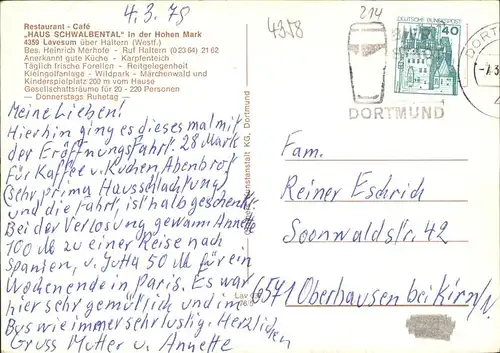 4.3.78
4358
214
Restaurant - Café
„HAUS SCHWALBENTAL" in der Hohen Mark
4359 Lavesum über Haltern (Westf.)
Bes. Heinrich Merhofe - Ruf Haltern (02364) 2162
Anerkannt gute Küche - Karpfenteich
Täglich frische Forellen - Reitgelegenheit
Kleingolfanlage - Wildpark - Märchenwald und
Kinderspielplatz 200 m vom Hause
Gesellschaftsräume für 20 - 220 Personen
— Donnerstags Ruhetag —
DEUTSCHE BUNDESPOST
40
DORTMUND
DORTM
Meine Lieben!
Hierhin ging es dieses mal mit
der Eröffnungsfahrt. 28 Mark
für Kaffee u. Kuchen, Abenbrot
(sehr prima Hausschlachtung)
und die Fahrt, ist halb geschenkt.
Bei der Verlosung gewann Annette
100 M zu einer Reise nach
Spanien, u. Jutta 50 M für ein
Wochenende in Paris. Es war
hier sehr gemütlich und im
Bus wie immer sehr lustig. Herzlichen
Gruss Mutter u. Annette
Kunstanstalt KG, Dortmund
Lav
Fam.
Reiner Eschrich
Soonwaldstr. 42
6571 Oberhausen bei Kirn/N.